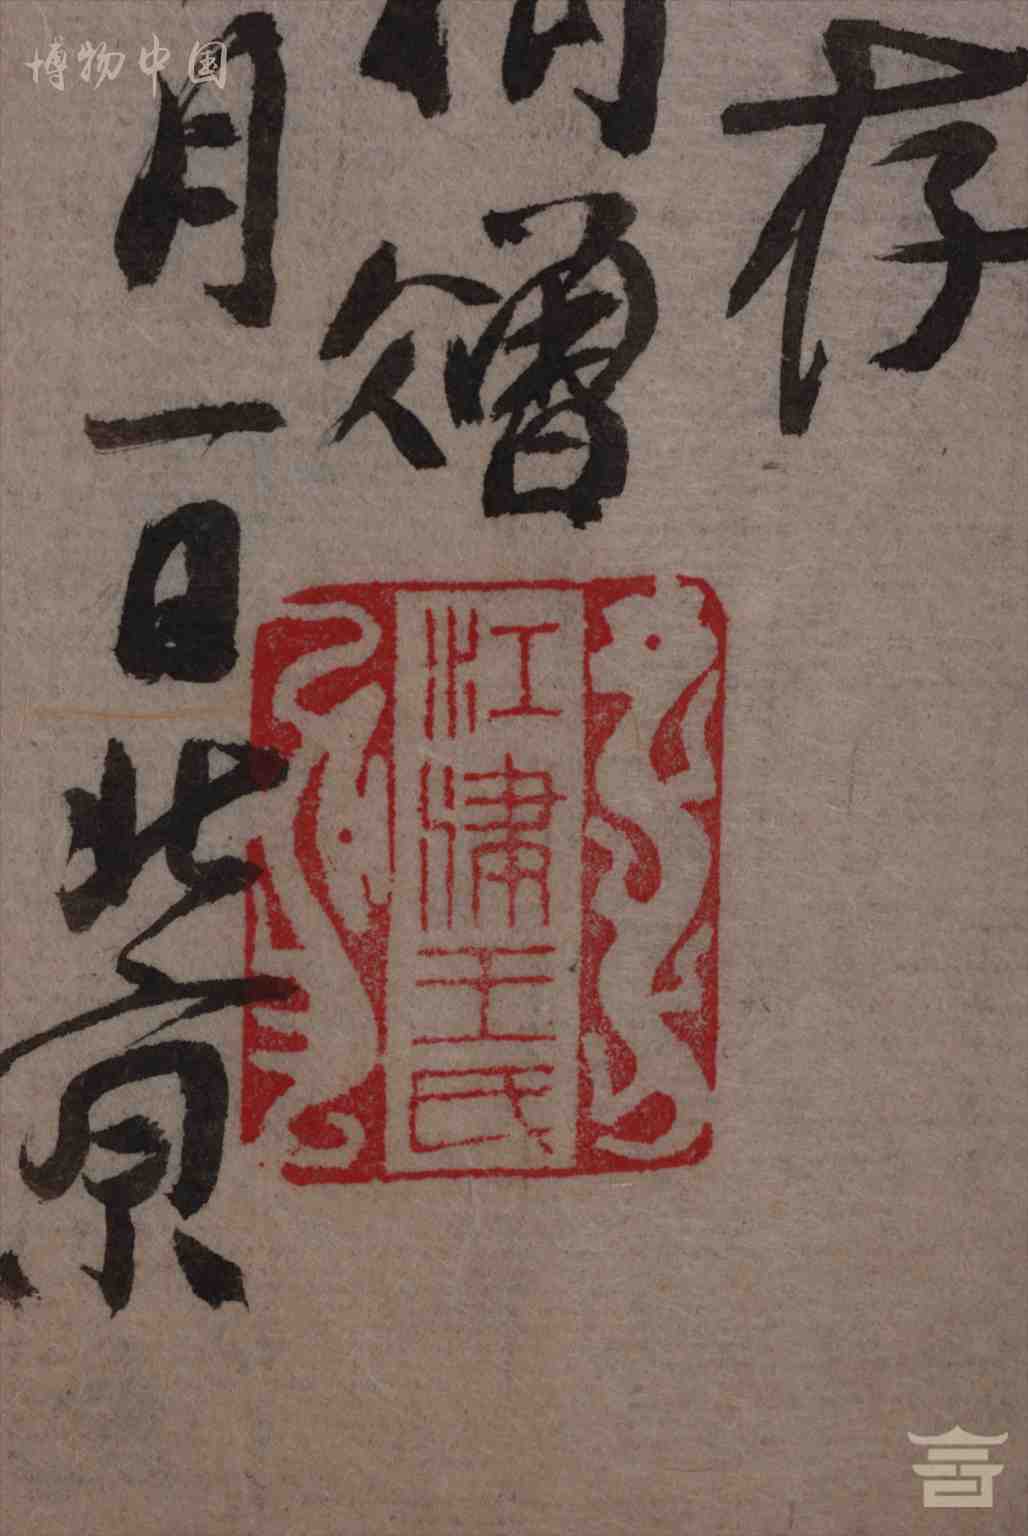 博物中国
存
僧
月一日北京
江津王氏